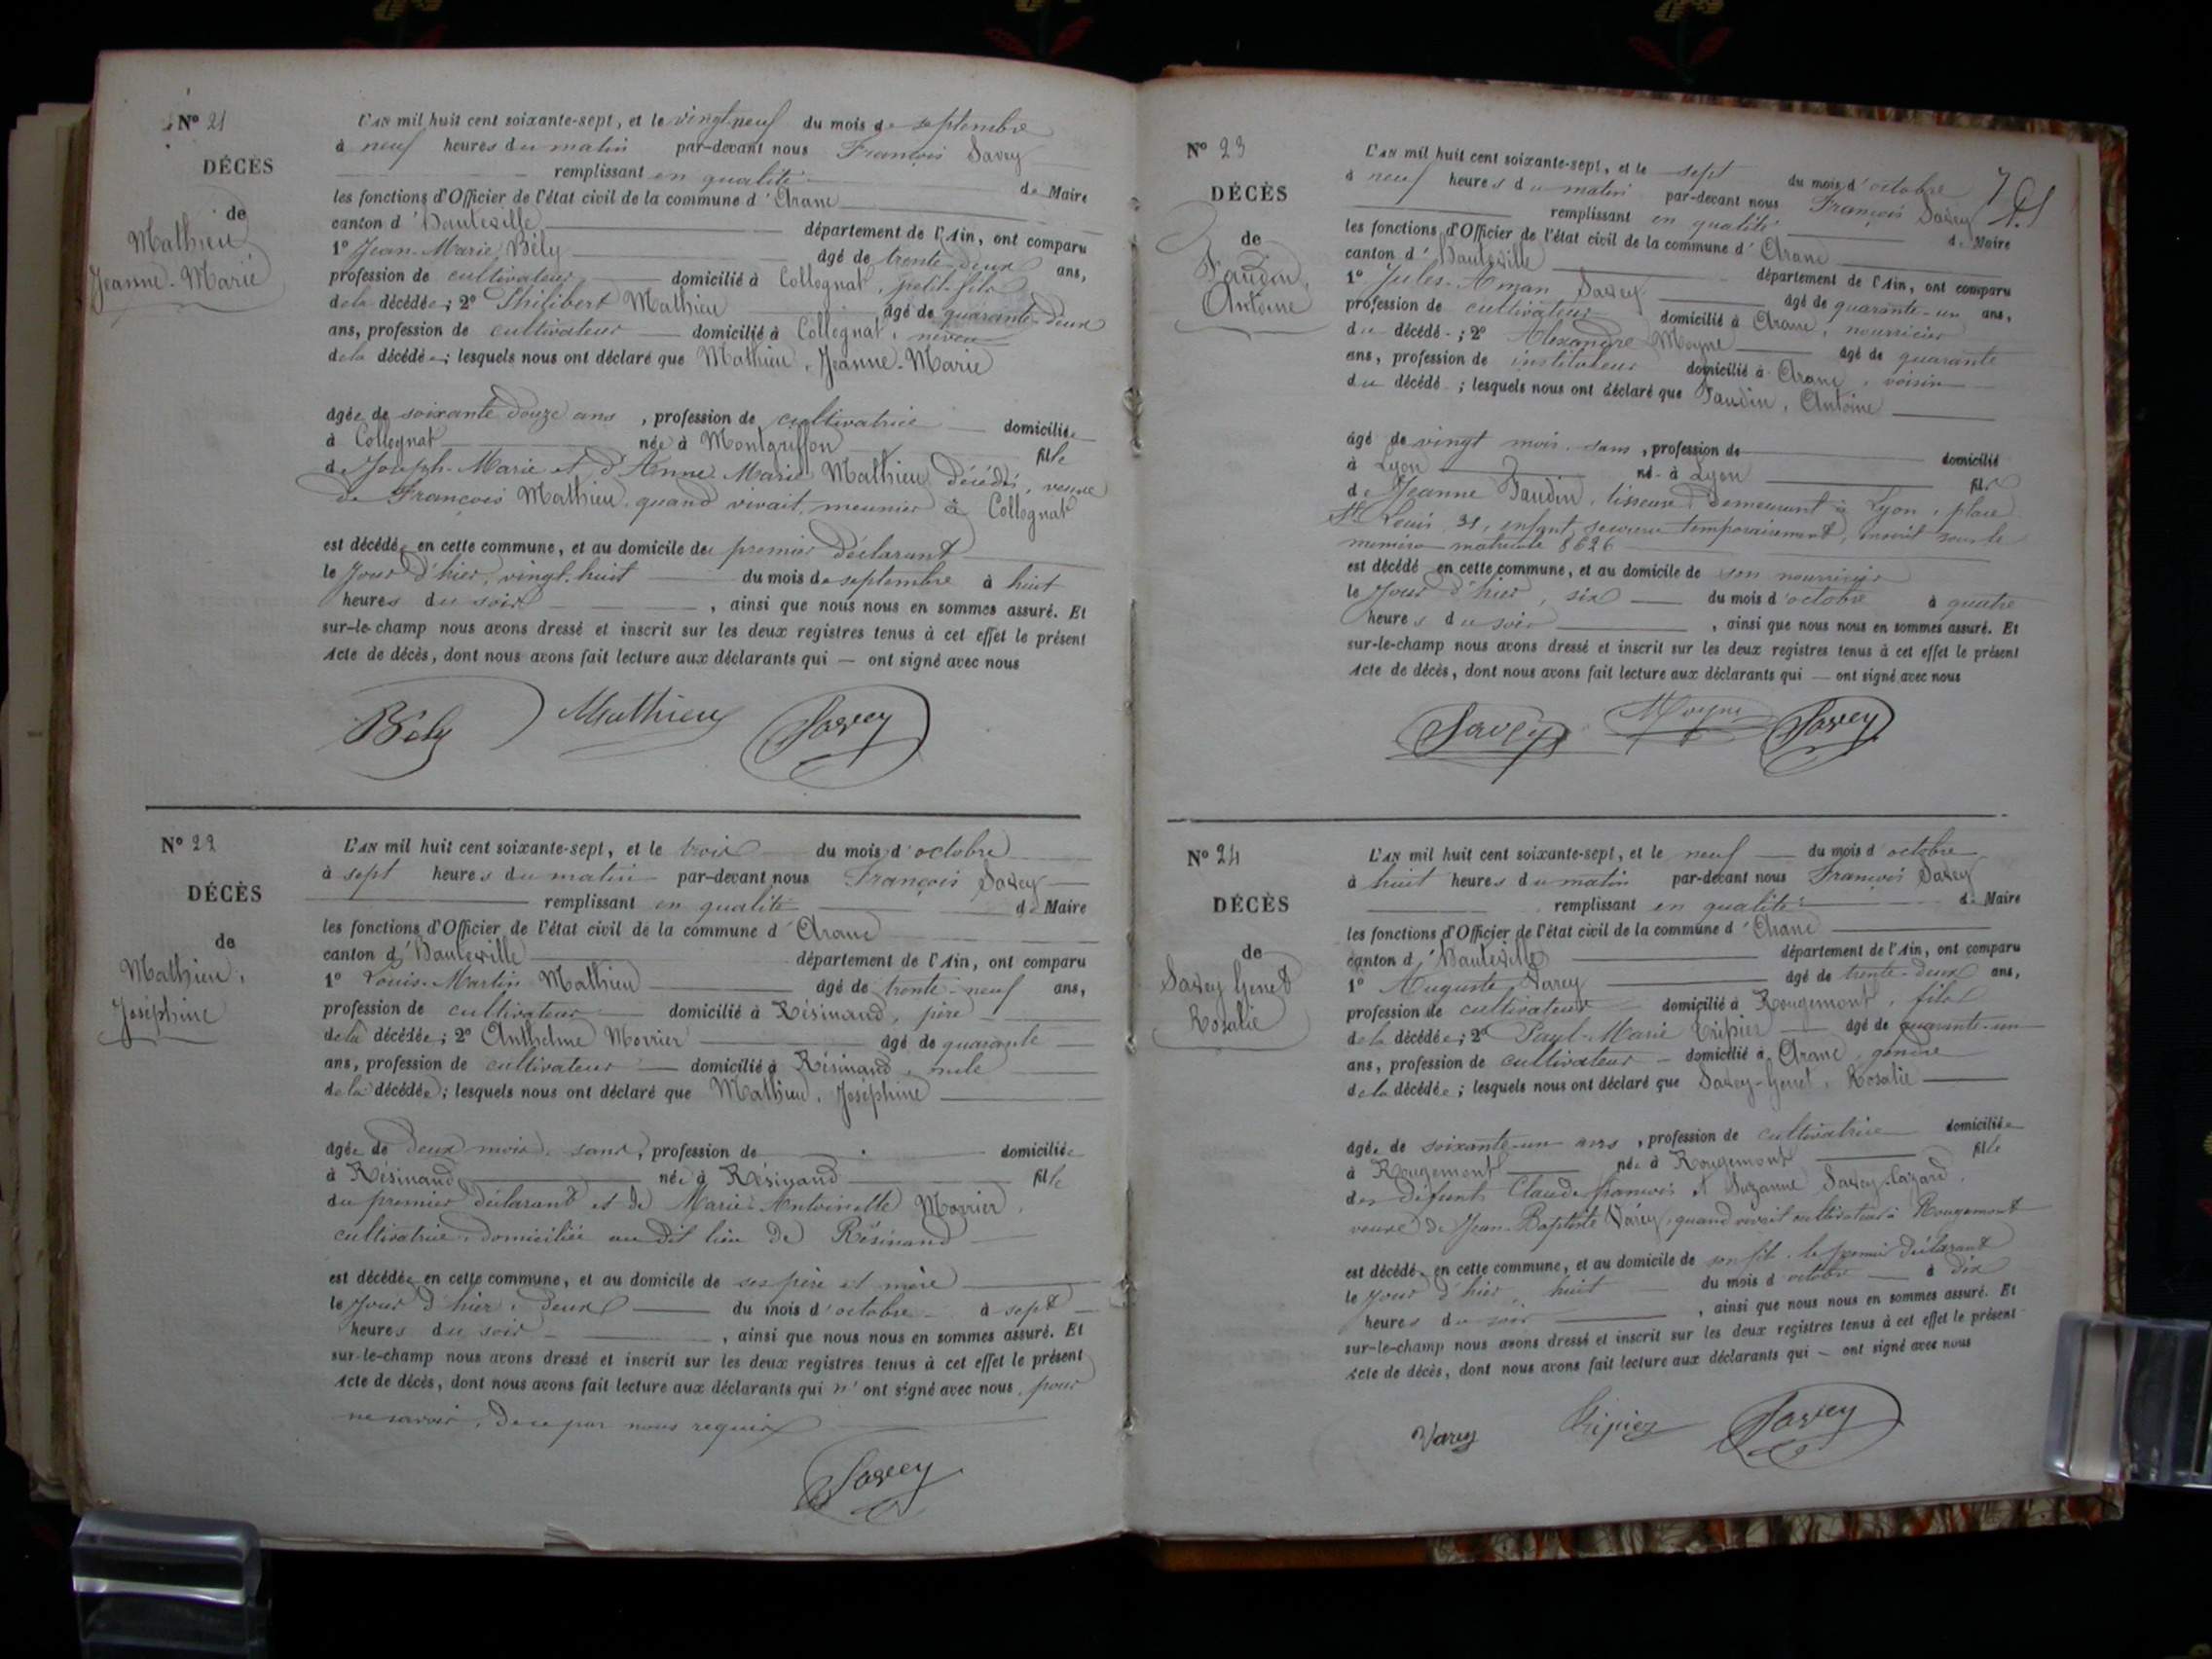 N° 21
DÉCÈS
de
Mathieu
Jeanne-Marie
L'AN mil huit cent soixante-sept, et le vingt-neuf du mois de septembre
à neuf heures du matin par-devant nous François Savey
remplissant en qualité de Maire
les fonctions d'Officier de l'état civil de la commune d'Aranc
canton d'Hauteville département de l'Ain, ont comparu
1° Jean-Marie Bély âgé de trente-deux ans,
profession de cultivateur domicilié à Collognat, petit-fils
de la décédée; 2° Philibert Mathieu âgé de quarante-deux
ans, profession de cultivateur domicilié à Collognat, neveu
de la décédée; lesquels nous ont déclaré que Mathieu, Jeanne-Marie
âgée de soixante douze ans, profession de cultivatrice domiciliée
à Collognat née à Montgriffon fille
de Joseph-Marie et d'Anne-Marie Mathieu décédés, veuve
de François Mathieu, quand vivait, meunier à Collognat
est décédée en cette commune, et au domicile du premier déclarant
le jour d'hier, vingt-huit du mois de septembre à huit
heures du soir, ainsi que nous nous en sommes assuré. Et
sur-le-champ nous avons dressé et inscrit sur les deux registres tenus à cet effet le présent
Acte de décès, dont nous avons fait lecture aux déclarants qui — ont signé avec nous
Bély Mathieu Savey
N° 22
DÉCÈS
de
Mathieu,
Joséphine
L'AN mil huit cent soixante-sept, et le trois du mois d'octobre
à sept heures du matin par-devant nous François Savey
remplissant en qualité de Maire
les fonctions d'Officier de l'état civil de la commune d'Aranc
canton d'Hauteville département de l'Ain, ont comparu
1° Louis-Martin Mathieu âgé de trente-neuf ans,
profession de cultivateur domicilié à Résinand, père
de la décédée; 2° Anthelme Morrier âgé de quarante
ans, profession de cultivateur domicilié à Résinand, oncle
de la décédée; lesquels nous ont déclaré que Mathieu, Joséphine
âgée de deux mois, sans, profession de domiciliée
à Résinand née à Résinand fille
du premier déclarant et de Marie-Antoinette Morrier,
cultivatrice, domiciliée au dit lieu de Résinand
est décédée en cette commune, et au domicile de ses père et mère
le jour d'hier, deux du mois d'octobre à sept
heures du soir, ainsi que nous nous en sommes assuré. Et
sur-le-champ nous avons dressé et inscrit sur les deux registres tenus à cet effet le présent
Acte de décès, dont nous avons fait lecture aux déclarants qui n'ont signé avec nous, pour
ne savoir, de ce par nous requis
Savey
N° 23
DÉCÈS
de
Faudin,
Antoine
L'AN mil huit cent soixante-sept, et le sept du mois d'octobre
à neuf heures du matin par-devant nous François Savey
remplissant en qualité de Maire
les fonctions d'Officier de l'état civil de la commune d'Aranc
canton d'Hauteville département de l'Ain, ont comparu
1° Jules-Aman Savey âgé de quarante-un ans,
profession de cultivateur domicilié à Aranc, nourricier
du décédé; 2° Alexandre Moyne âgé de quarante
ans, profession de instituteur domicilié à Aranc, voisin
du décédé; lesquels nous ont déclaré que Faudin, Antoine
âgé de vingt mois, sans, profession de domicilié
à Lyon né à Lyon fils
de Jeanne Faudin, lisseuse, demeurant à Lyon, place
St Louis, 31, enfant secouru temporairement, inscrit sous le
numéro matricule 8626
est décédé en cette commune, et au domicile de son nourricier
le jour d'hier, six du mois d'octobre à quatre
heures du soir, ainsi que nous nous en sommes assuré. Et
sur-le-champ nous avons dressé et inscrit sur les deux registres tenus à cet effet le présent
Acte de décès, dont nous avons fait lecture aux déclarants qui — ont signé avec nous
Savey Moyne Savey
N° 24
DÉCÈS
de
Savey Genet
Rosalie
L'AN mil huit cent soixante-sept, et le neuf du mois d'octobre
à huit heures du matin par-devant nous François Savey
remplissant en qualité de Maire
les fonctions d'Officier de l'état civil de la commune d'Aranc
canton d'Hauteville département de l'Ain, ont comparu
1° Auguste Varey âgé de trente-deux ans,
profession de cultivateur domicilié à Rougemont, fils
de la décédée; 2° Paul-Marie Tripier âgé de quarante-un
ans, profession de cultivateur domicilié à Aranc, gendre
de la décédée; lesquels nous ont déclaré que Savey-Genet, Rosalie
âgée de soixante-un ans, profession de cultivatrice domiciliée
à Rougemont née à Rougemont fille
des défunts Claude-François et Suzanne Savey-Cazard,
veuve de Jean-Baptiste Varey, quand vivait cultivateur à Rougemont
est décédée en cette commune, et au domicile de son fils, le premier déclarant
le jour d'hier, huit du mois d'octobre à dix
heures du soir, ainsi que nous nous en sommes assuré. Et
sur-le-champ nous avons dressé et inscrit sur les deux registres tenus à cet effet le présent
Acte de décès, dont nous avons fait lecture aux déclarants qui — ont signé avec nous
Varey Tripier Savey